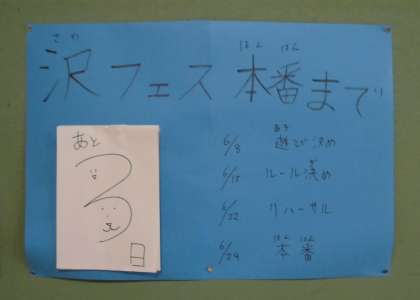 さわ ほん ばん
沢フェス 本番まで
あと
3
日
あそ
6/8 遊び決め
ぎ
6/15 ルール決め
6/22 リハーサル
ほん ばん
6/29 本番